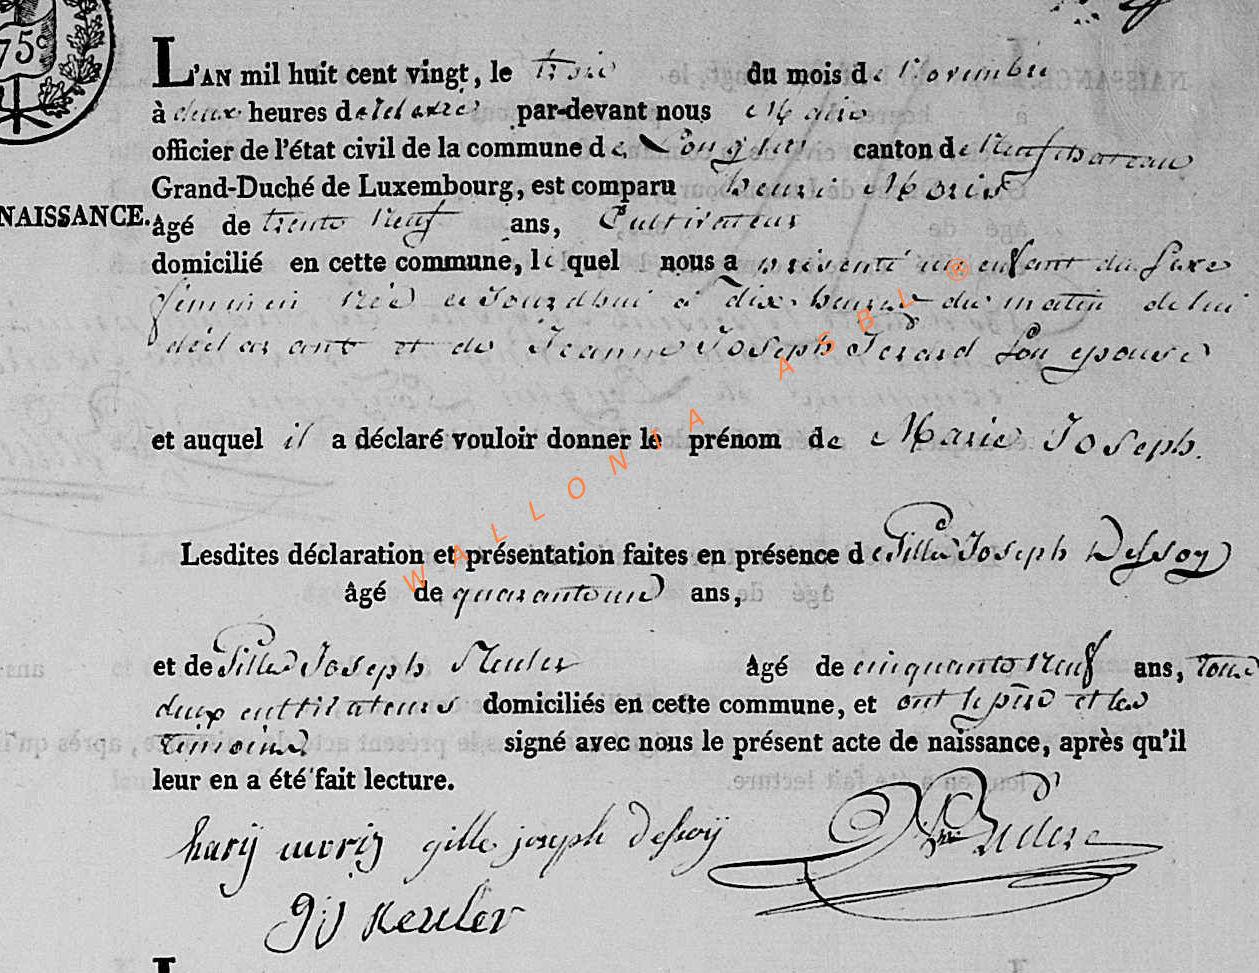 75c
L'AN mil huit cent vingt, le trois du mois de Novembre
à deux heures de relevée par-devant nous Maire
officier de l'état civil de la commune de Longlier canton de Neufchateau
Grand-Duché de Luxembourg, est comparu henri Moris
NAISSANCE. âgé de trente Neuf ans, Cultivateur
domicilié en cette commune, le quel nous a présenté un enfant du sexe
féminin Née aujourdhui à dix heures du matin de lui
déclarant et de Jeanne Joseph Jerard Son epouse
et auquel il a déclaré vouloir donner le prénom de Marie Joseph.
Lesdites déclaration et présentation faites en présence de Gille Joseph Dessoy
âgé de quarante un ans,
et de Gille Joseph Keuler âgé de cinquante Neuf ans, tous
deux cultivateurs domiciliés en cette commune, et ont le père et les
témoins signé avec nous le présent acte de naissance, après qu'il
leur en a été fait lecture.
harij moris gille joseph dessoij
gj Keuler
WALLONIA ASBL ®